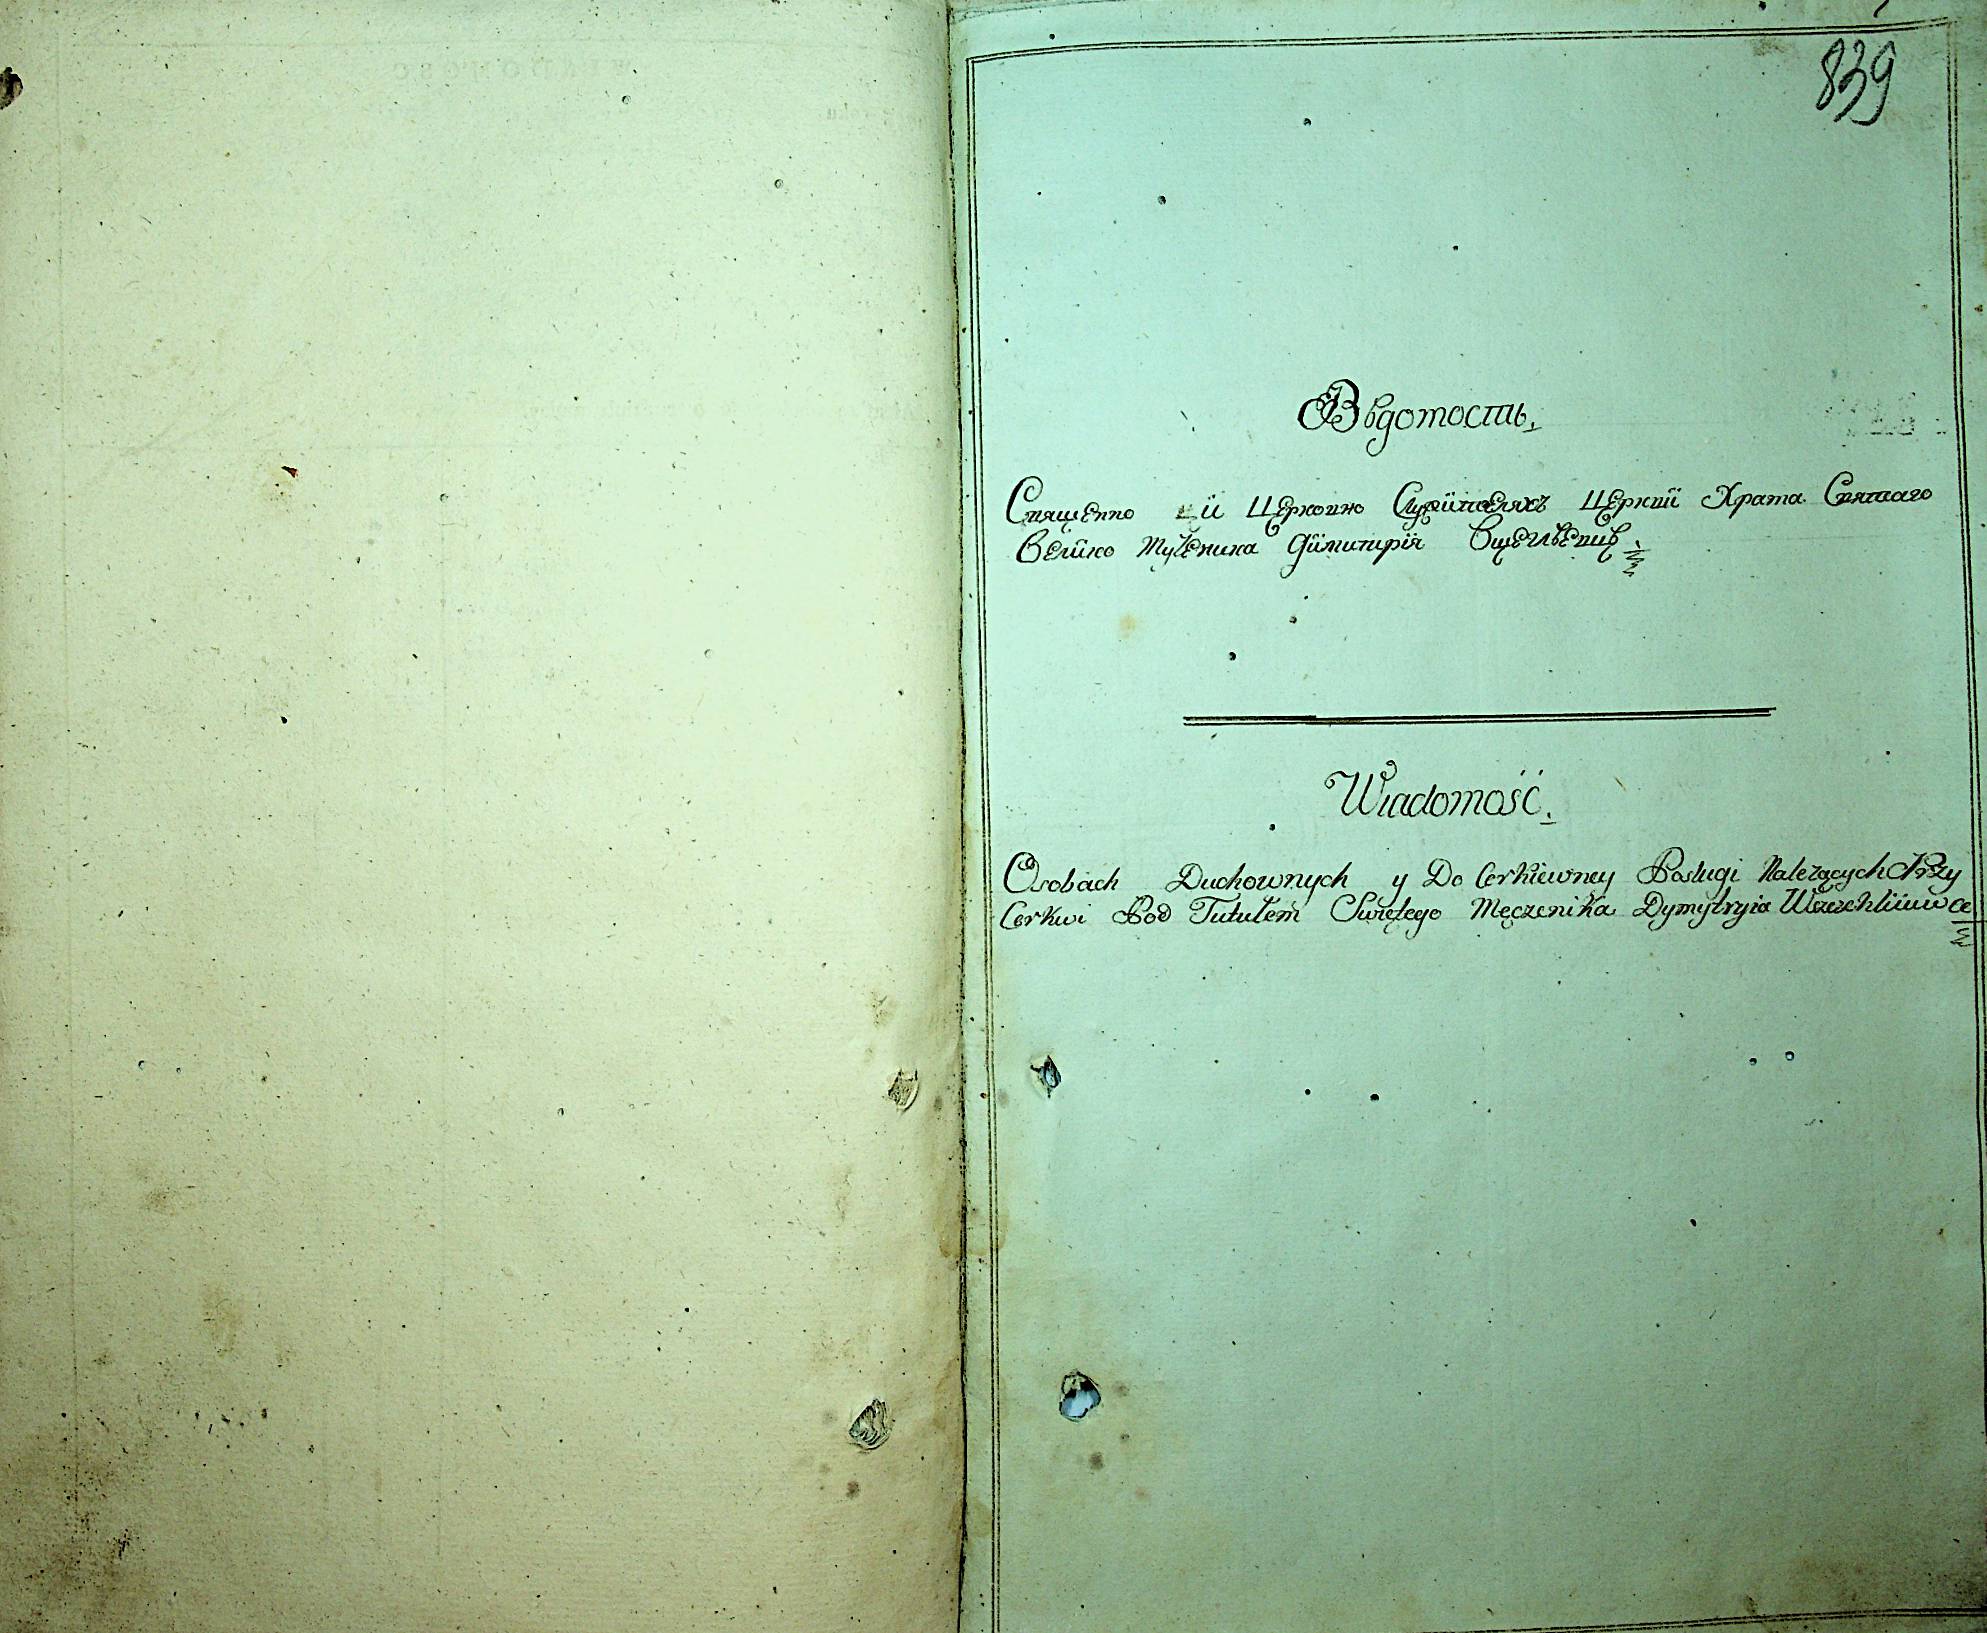 839
Вѣдомость.
Священно ӥ Церковно Служителяхъ Церквӥ Храма Святаго
Велико Мученика Дӥмитрӥя
Wiadomość.
Osobach Duchownych y Do Cerkiewney Posługi Należących Przy
Cerkwi Pod Tutułem Swiętego Męczenika Dymytryia